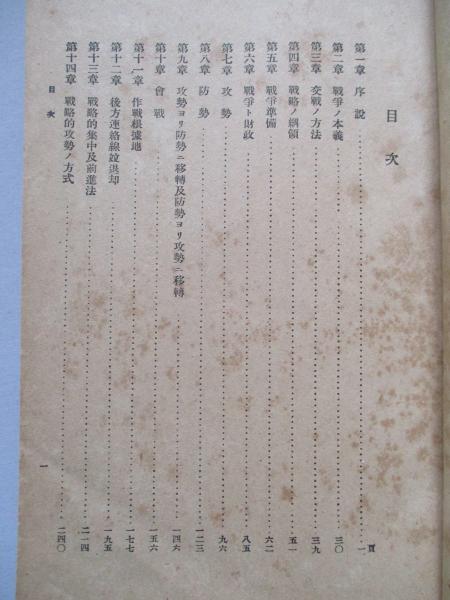 目次
頁
第一章 序説…一
第二章 戰爭ノ本義…三〇
第三章 交戰ノ方法…三九
第四章 戰略ノ綱領…五一
第五章 戰爭準備…六二
第六章 戰爭ト財政…八五
第七章 攻勢…九六
第八章 防勢…一二三
第九章 攻勢ヨリ防勢ニ移轉及防勢ヨリ攻勢ニ移轉…一四六
第十章 會戰…一五六
第十一章 作戰根據地…一七七
第十二章 後方連絡線竝退却…一九五
第十三章 戰略的集中及前進法…二一四
第十四章 戰略的攻勢ノ方式…二四〇
目次
一